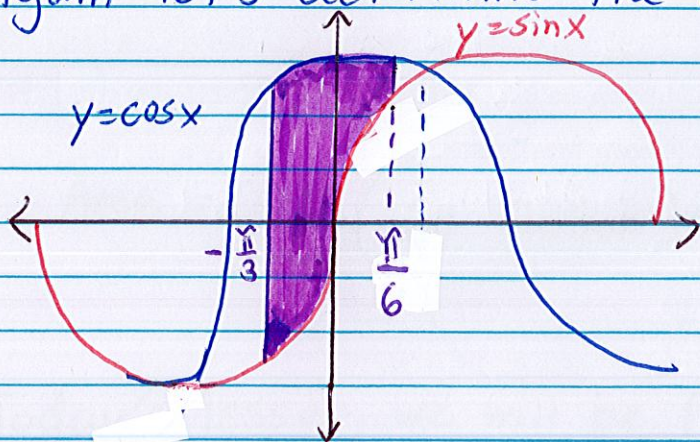 y=sinx
y=cosx
- π/3
π/6